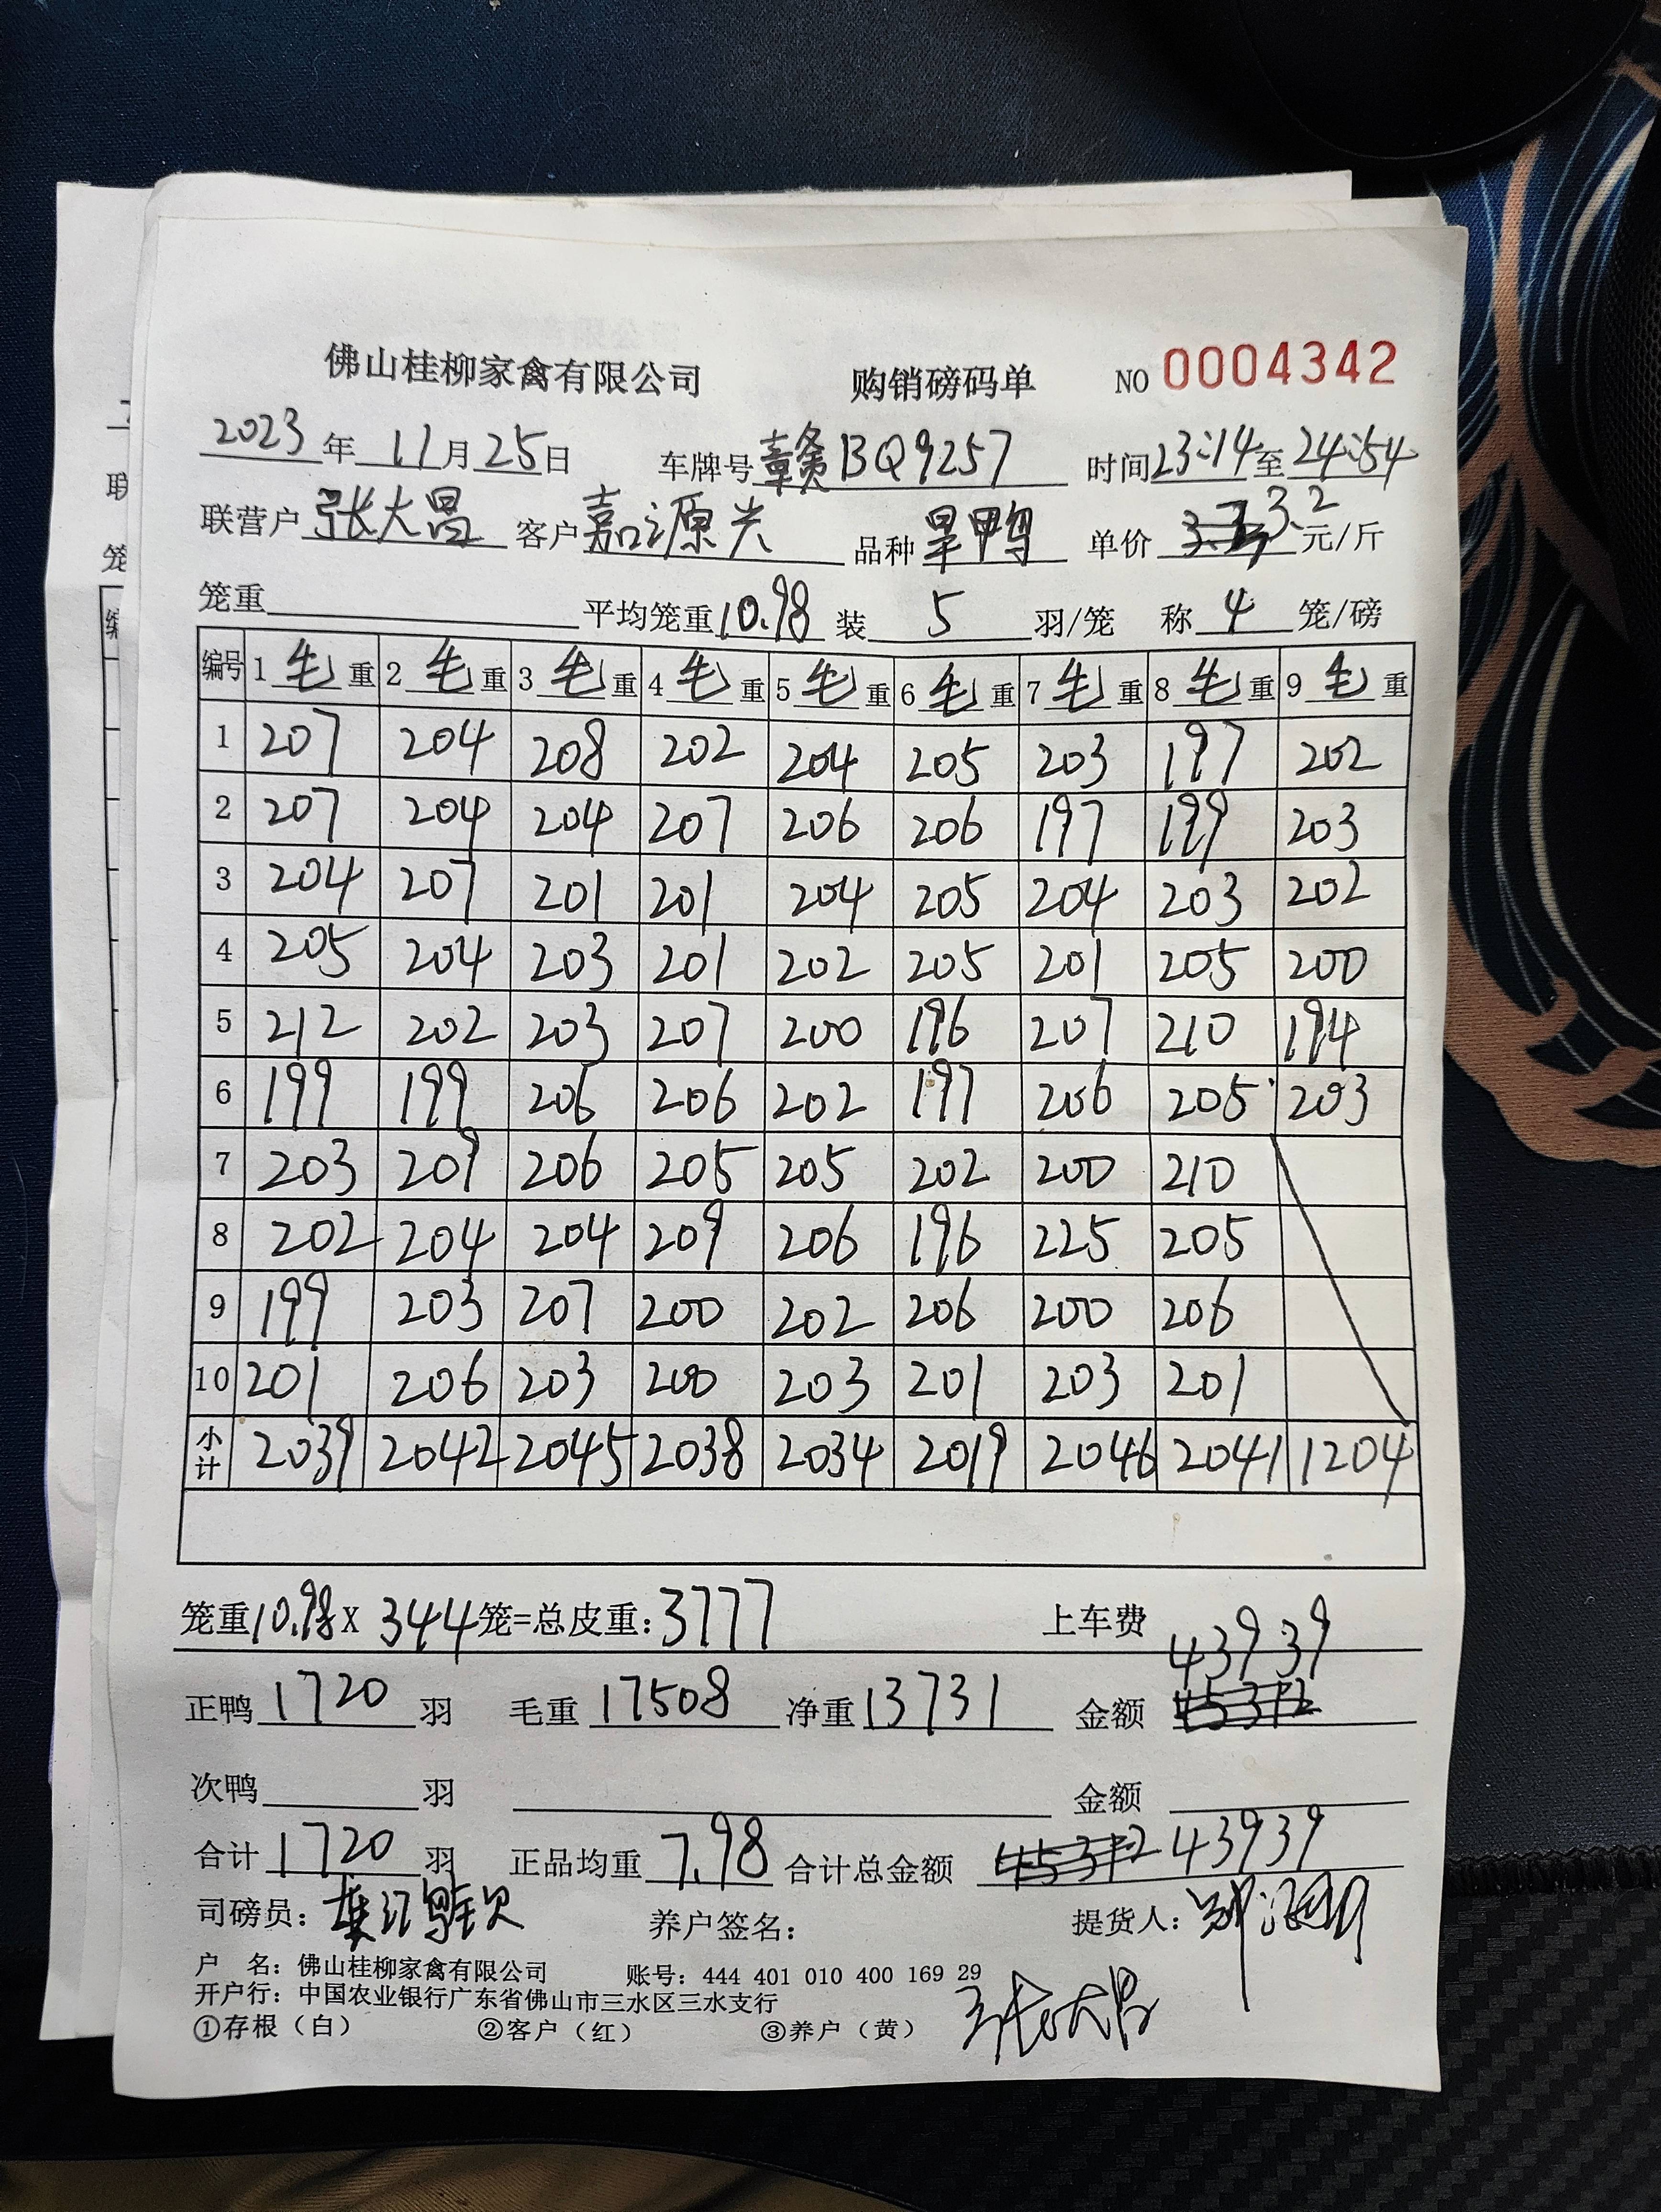 佛山桂柳家禽有限公司 购销磅码单 NO 0004342
2023年11月25日 车牌号赣BQ9257 时间23:14至24:54
联营户张大昌 客户嘉源兴 品种旱鸭 单价3.2元/斤
笼重 平均笼重10.98 装5羽/笼 称4笼/磅
编号 1毛重 2毛重 3毛重 4毛重 5毛重 6毛重 7毛重 8毛重 9毛重
1 207 204 208 202 204 205 203 197 202
2 207 204 204 207 206 206 197 199 203
3 204 207 201 201 204 205 204 203 202
4 205 204 203 201 202 205 201 205 200
5 212 202 203 207 200 196 207 210 194
6 199 199 206 206 202 197 206 205 203
7 203 209 206 205 205 202 200 210
8 202 204 204 209 206 196 225 205
9 199 203 207 200 202 206 200 206
10 201 206 203 200 203 201 203 201
小计 2039 2042 2045 2038 2034 2019 2046 2041 1204
笼重10.98X 344笼=总皮重:3777 上车费
正鸭1720羽 毛重17508 净重13731 金额43939
次鸭 羽 金额
合计1720羽 正品均重7.98 合计总金额 43939
司磅员: 养户签名: 提货人:
户 名:佛山桂柳家禽有限公司 账号:444 401 010 400 169 29
开户行:中国农业银行广东省佛山市三水区三水支行
①存根(白) ②客户(红) ③养户(黄) 张大昌